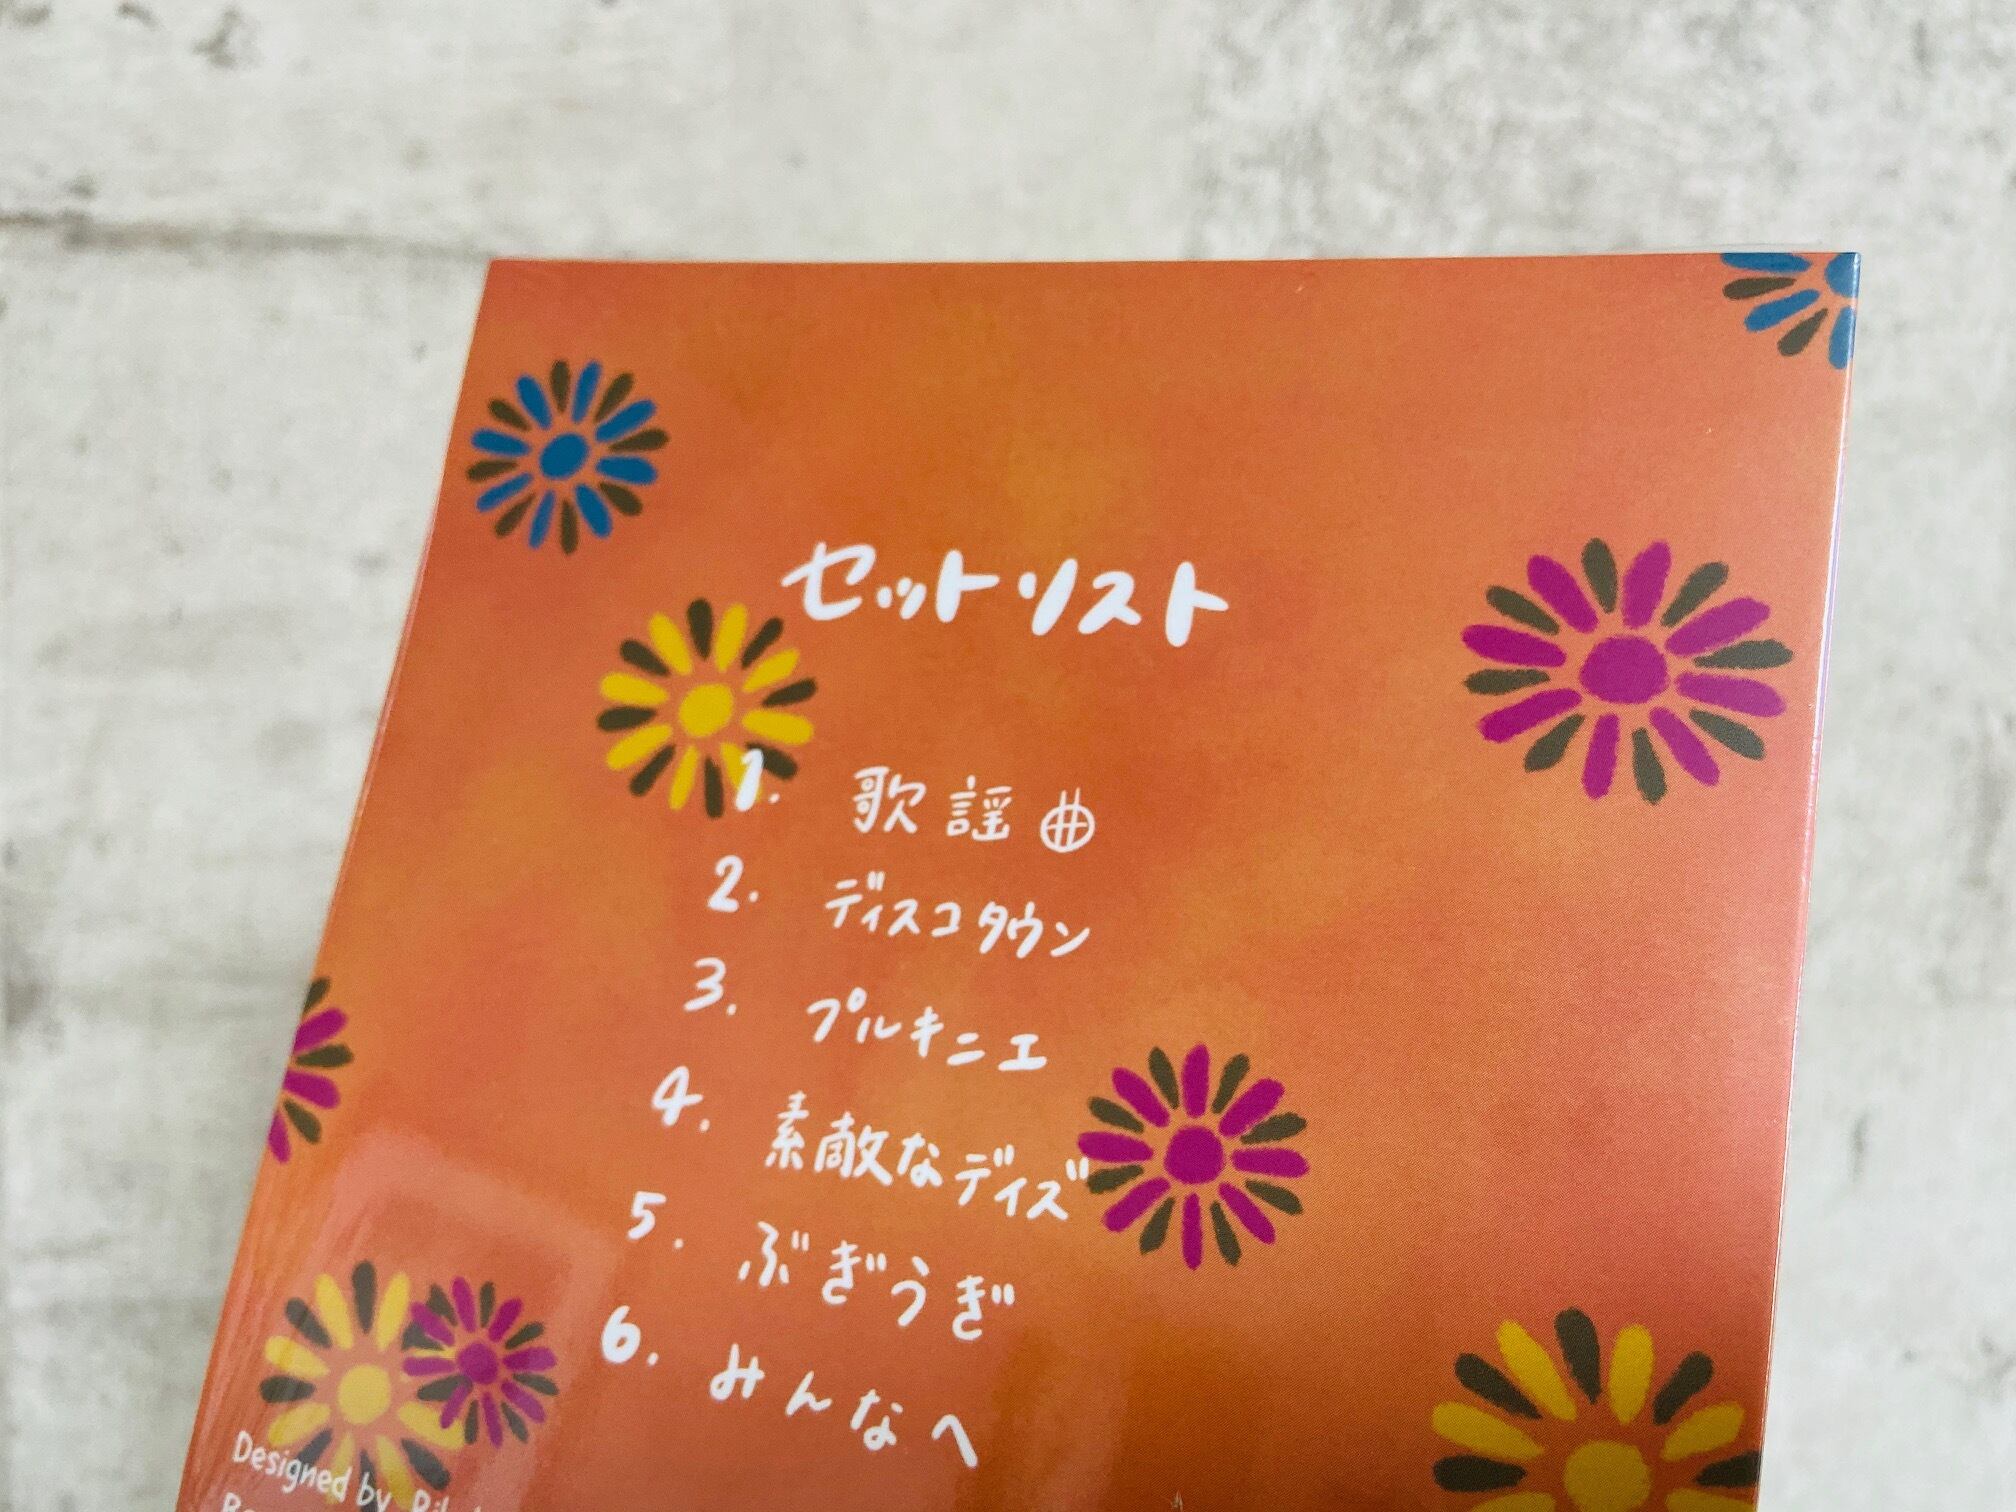 セットリスト
1. 歌謡曲
2. ディスコタウン
3. プルキニエ
4. 素敵なデイズ
5. ぶぎうぎ
6. みんなへ
Designed by